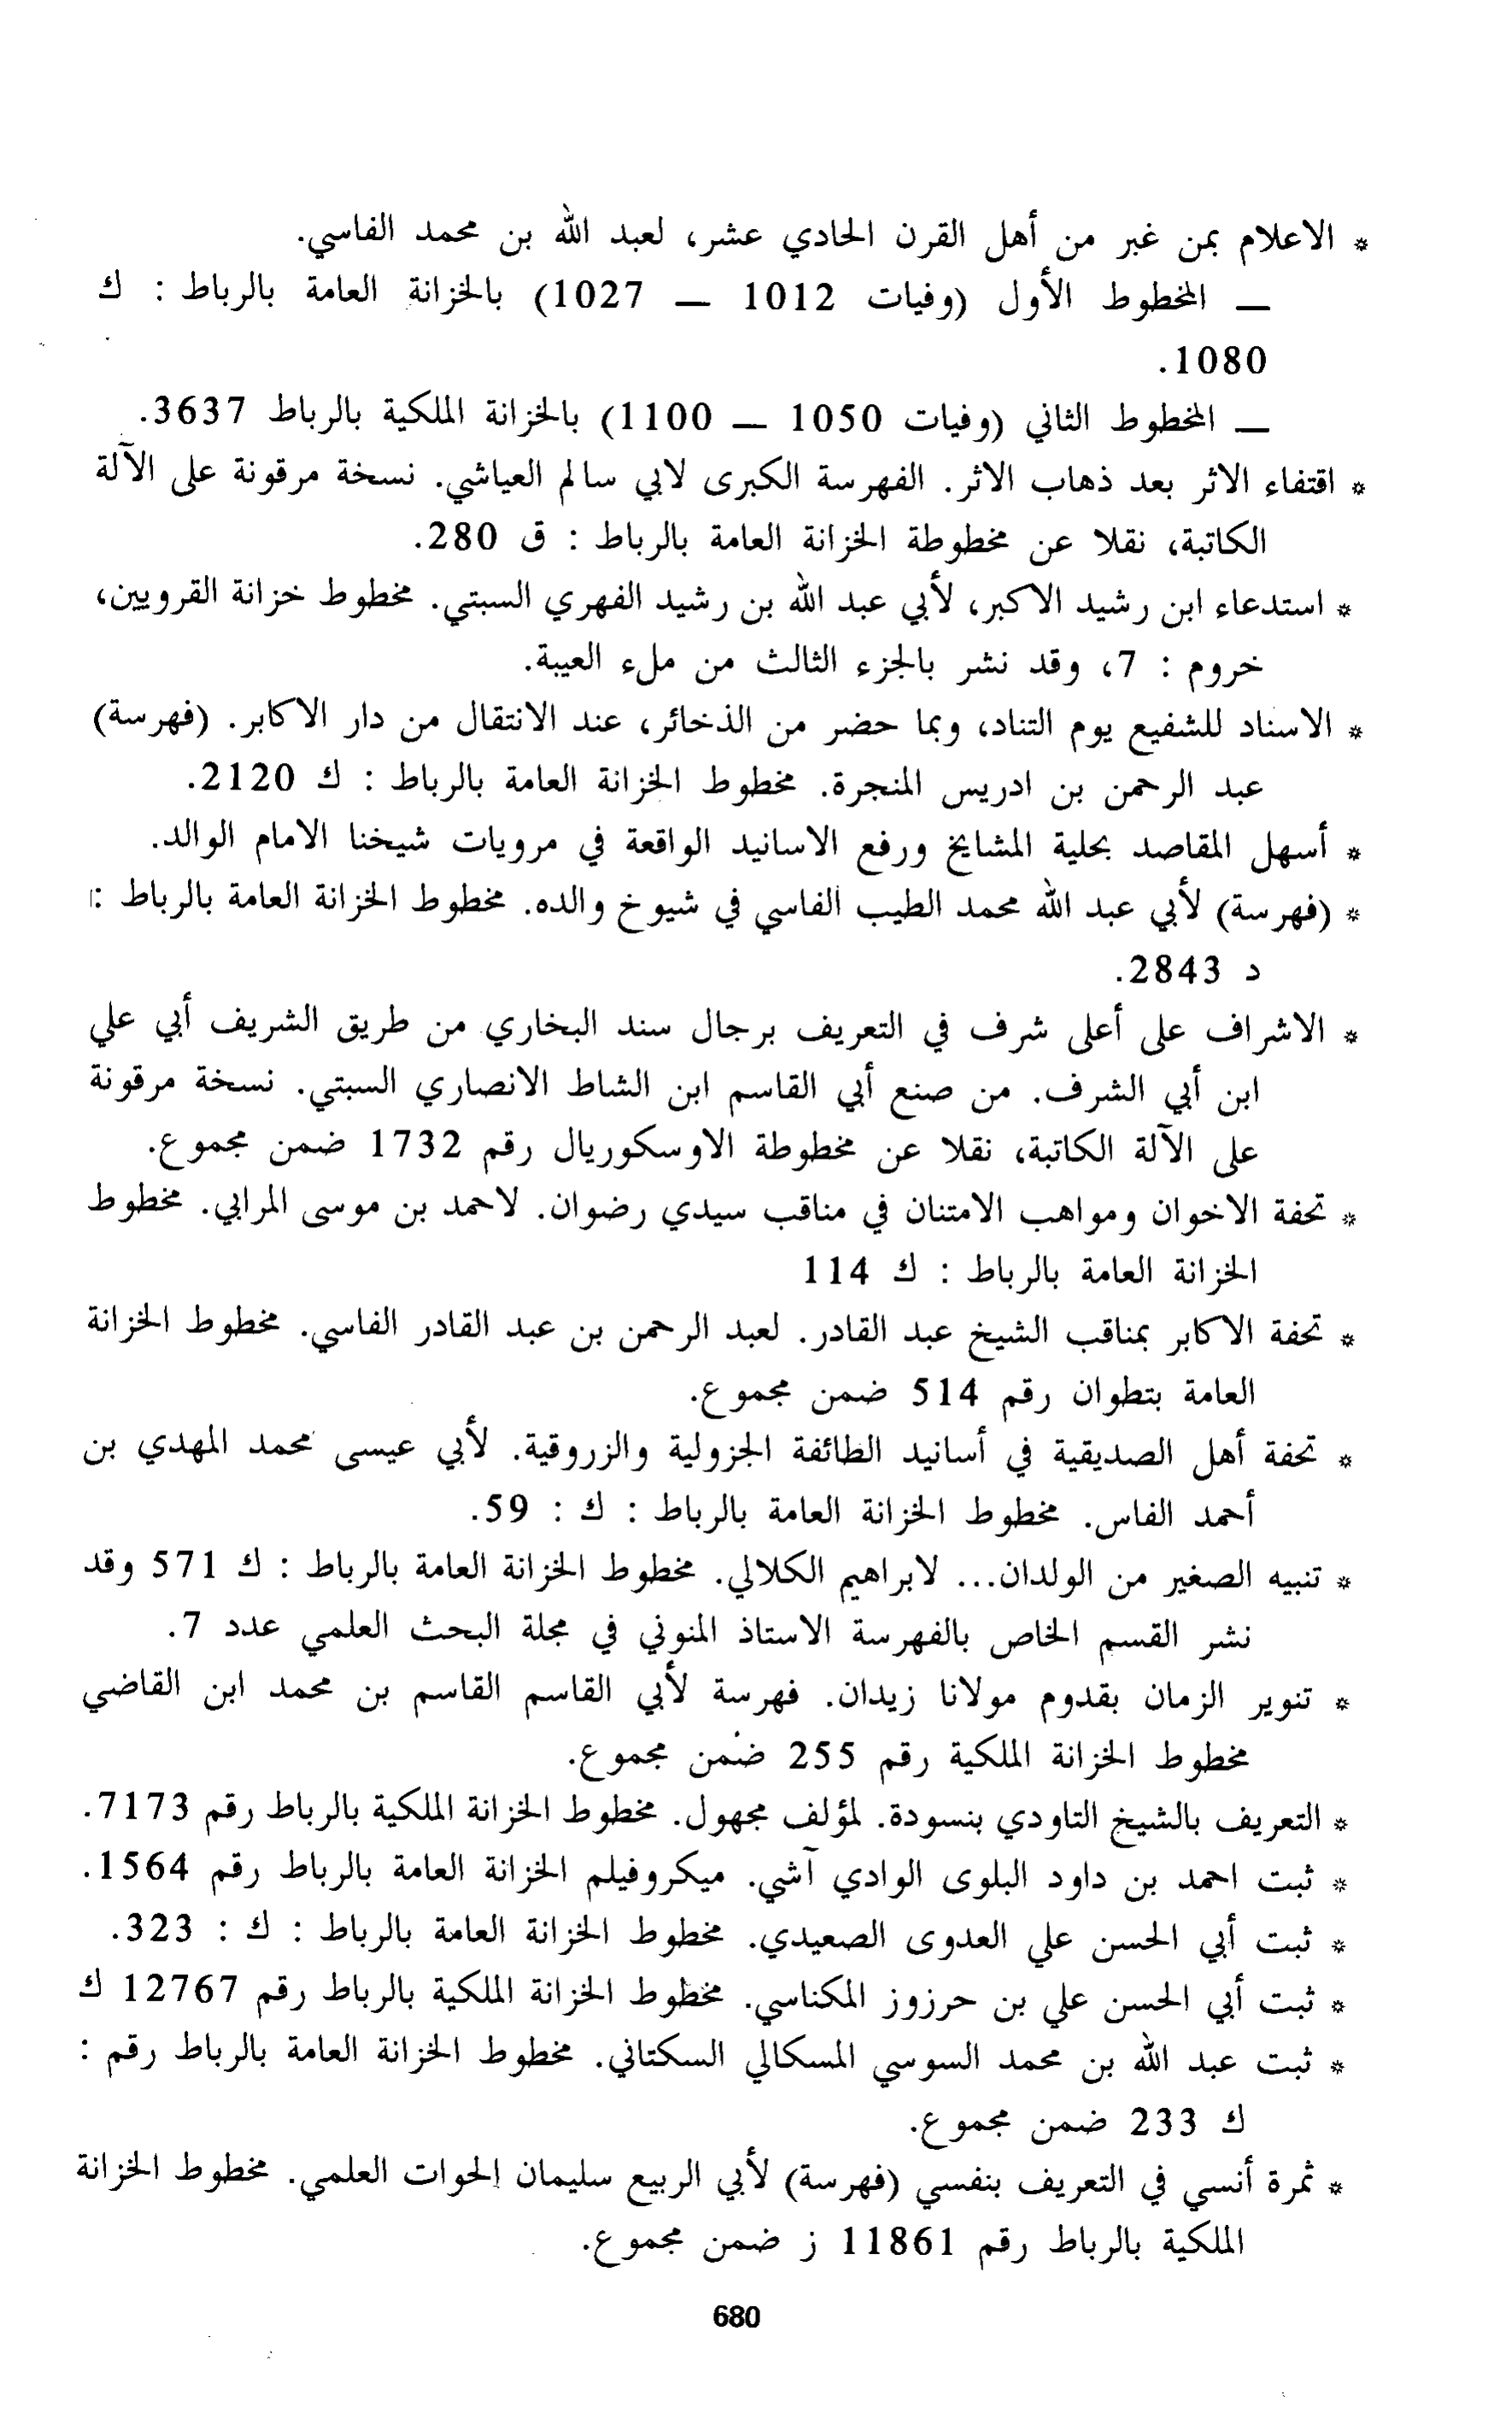 * الاعلام بمن غبر من أهل القرن الحادي عشر، لعبد الله بن محمد الفاسي.
— المخطوط الأول (وفيات 1012 — 1027) بالخزانة العامة بالرباط : ك
1080.
— المخطوط الثاني (وفيات 1050 — 1100) بالخزانة الملكية بالرباط 3637.
* اقتفاء الاثر بعد ذهاب الاثر. الفهرسة الكبرى لابي سالم العياشي. نسخة مرقونة على الآلة
الكاتبة، نقلا عن مخطوطة الخزانة العامة بالرباط : ق 280.
* استدعاء ابن رشيد الاكبر، لأبي عبد الله بن رشيد الفهري السبتي. مخطوط خزانة القرويين،
خروم : 7، وقد نشر بالجزء الثالث من ملء العيبة.
* الاسناد للشفيع يوم التناد، وبما حضر من الذخائر، عند الانتقال من دار الاكابر. (فهرسة)
عبد الرحمن بن ادريس المنجرة. مخطوط الخزانة العامة بالرباط : ك 2120.
* أسهل المقاصد بحلية المشايخ ورفع الاسانيد الواقعة في مرويات شيخنا الامام الوالد.
* (فهرسة) لأبي عبد الله محمد الطيب الفاسي في شيوخ والده. مخطوط الخزانة العامة بالرباط :
د 2843.
* الاشراف على أعلى شرف في التعريف برجال سند البخاري من طريق الشريف أبي علي
ابن أبي الشرف. من صنع أبي القاسم ابن الشاط الانصاري السبتي. نسخة مرقونة
على الآلة الكاتبة، نقلا عن مخطوطة الاوسكوريال رقم 1732 ضمن مجموع.
* تحفة الاخوان ومواهب الامتنان في مناقب سيدي رضوان. لاحمد بن موسى المرابي. مخطوط
الخزانة العامة بالرباط : ك 114
* تحفة الاكابر بمناقب الشيخ عبد القادر. لعبد الرحمن بن عبد القادر الفاسي. مخطوط الخزانة
العامة بتطوان رقم 514 ضمن مجموع.
* تحفة أهل الصديقية في أسانيد الطائفة الجزولية والزروقية. لأبي عيسى محمد المهدي بن
أحمد الفاس. مخطوط الخزانة العامة بالرباط : ك : 59.
* تنبيه الصغير من الولدان... لابراهيم الكلالي. مخطوط الخزانة العامة بالرباط : ك 571 وقد
نشر القسم الخاص بالفهرسة الاستاذ المنوني في مجلة البحث العلمي عدد 7.
* تنوير الزمان بقدوم مولانا زيدان. فهرسة لأبي القاسم القاسم بن محمد ابن القاضي
مخطوط الخزانة الملكية رقم 255 ضمن مجموع.
* التعريف بالشيخ التاودي بنسودة. لمؤلف مجهول. مخطوط الخزانة الملكية بالرباط رقم 7173.
* ثبت احمد بن داود البلوى الوادي آشي. ميكروفيلم الخزانة العامة بالرباط رقم 1564.
* ثبت أبي الحسن علي العدوى الصعيدي. مخطوط الخزانة العامة بالرباط : ك : 323.
* ثبت أبي الحسن علي بن حرزوز المكناسي. مخطوط الخزانة الملكية بالرباط رقم 12767 ك
* ثبت عبد الله بن محمد السوسي المسكالي السكتاني. مخطوط الخزانة العامة بالرباط رقم :
ك 233 ضمن مجموع.
* ثمرة أنسي في التعريف بنفسي (فهرسة) لأبي الربيع سليمان الحوات العلمي. مخطوط الخزانة
الملكية بالرباط رقم 11861 ز ضمن مجموع.
680